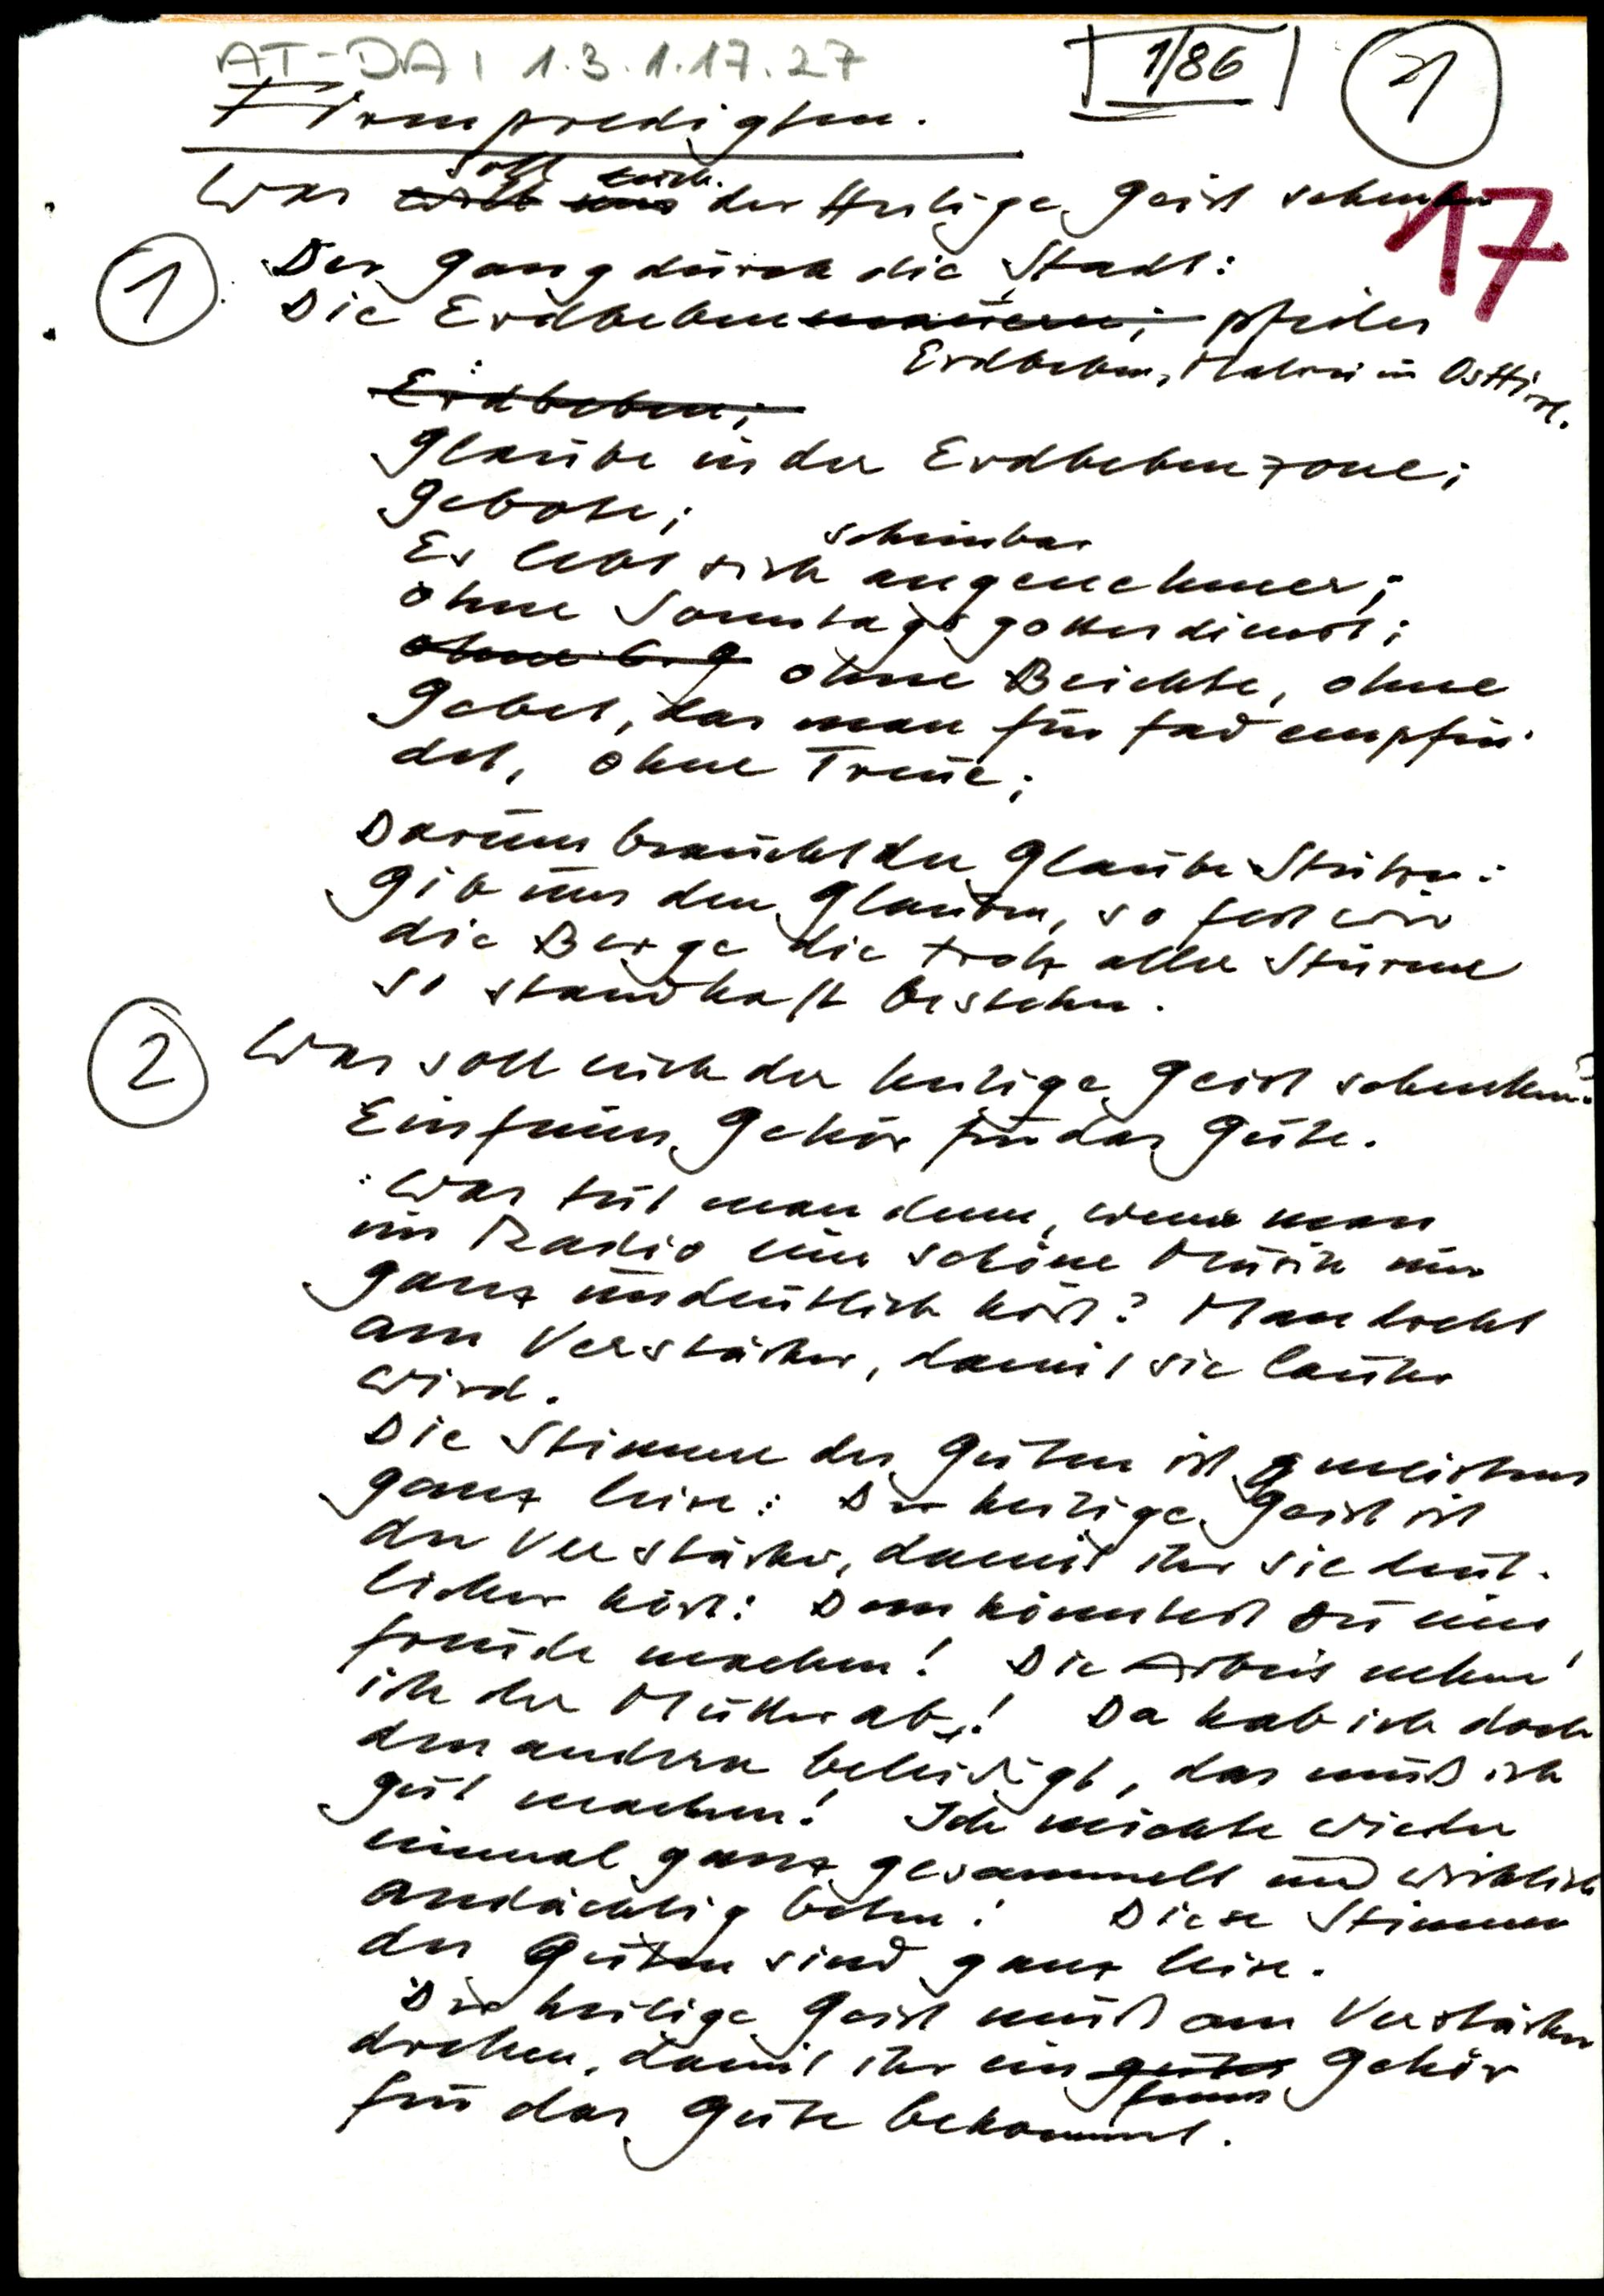 AT-DA, 1.3.1.17.27
1/86
Firmpredigten.
17
Was soll euch der Heilige Geist schenken
1 Der Gang durch die Stadt:
Die Erdbebenmauern; pfeiler
Erdbeben, Matrei in Osttirol.
Erdbeben;
Glaube in der Erdbebenzone;
Gebote;
Es lebt sich scheinbar angenehmer;
ohne Sonntagsgottesdienst;
ohne ohne Beichte, ohne
Gebet, das man für fad empfin-
det, ohne Treue;
Darum braucht der Glaube Stützen:
Gib uns den Glauben, so fest wie
die Berge die trotz aller Stürme
so standhaft bestehn.
2 Was soll euch der heilige Geist schenken?
Ein feines Gehör für das Gute.
Was tut man denn, wenn man
im Radio eine schöne Musik nur
ganz undeutlich hört? Man dreht
am Verstärker, damit sie lauter
wird.
Die Stimme des Guten ist meistens
ganz leise: Der heilige Geist ist
der Verstärker, damit ihr sie deut-
licher hört: Dem könntest du eine
Freude machen! Die Arbeit nehme
ich der Mutter ab! Da hab ich doch
den andern beleidigt, das muß ich
gut machen! Ich möchte wieder
einmal ganz gesammelt und wirklich
andächtig beten! Diese Stimmen
des Guten sind ganz leise.
Der heilige Geist muß am Verstärker
drehen, damit ihr ein gutes feines Gehör
für das Gute bekommt.